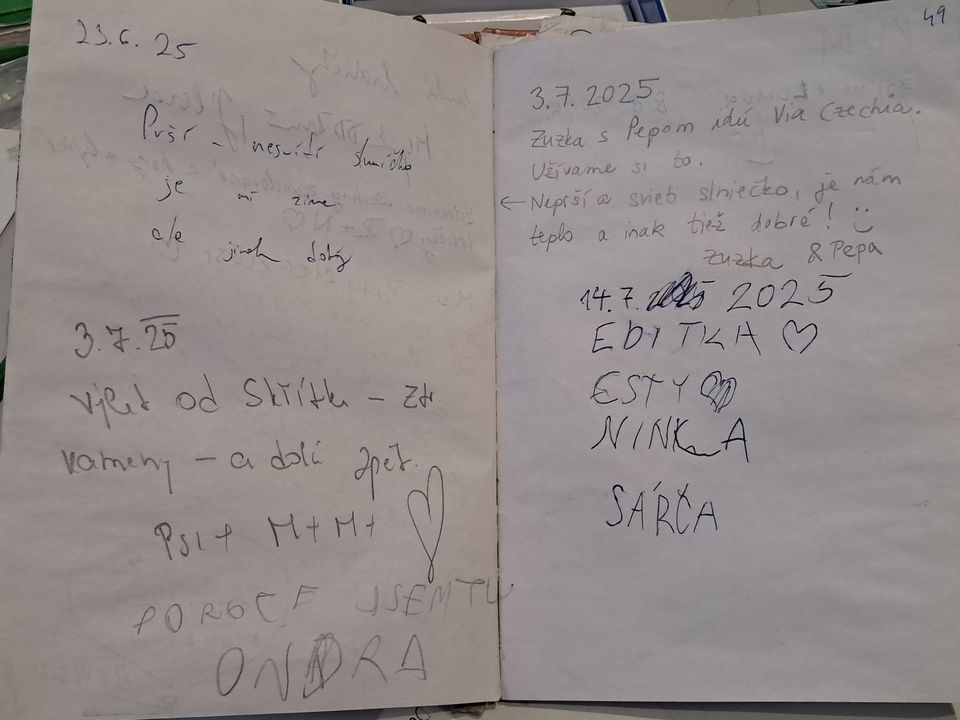 23.6.25
Prší - nesvítí sluníčko
je mi zima
ale jinak dobrý
3.7.25
výlet od Skřítku - Ztr.
kameny - a dolů zpět.
Psi + M+M+ ♡
PO ROCE JSEM TU
ONDRA
49
3.7.2025
Zuzka s Pepom idú Via Czechia.
Užívame si to.
← Neprší a svieti slniečko, je nám
teplo a inak tiež dobré! :)
Zuzka & Pepa
14.7. 2025
EDITKA ♡
ESTY
NINKA
SÁRČA